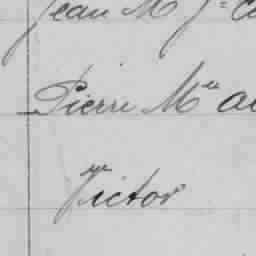 Jean M J=
Pierre Mie
Victor